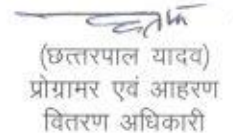 (छत्तरपाल यादव)
प्रोग्रामर एवं आहरण
वितरण अधिकारी